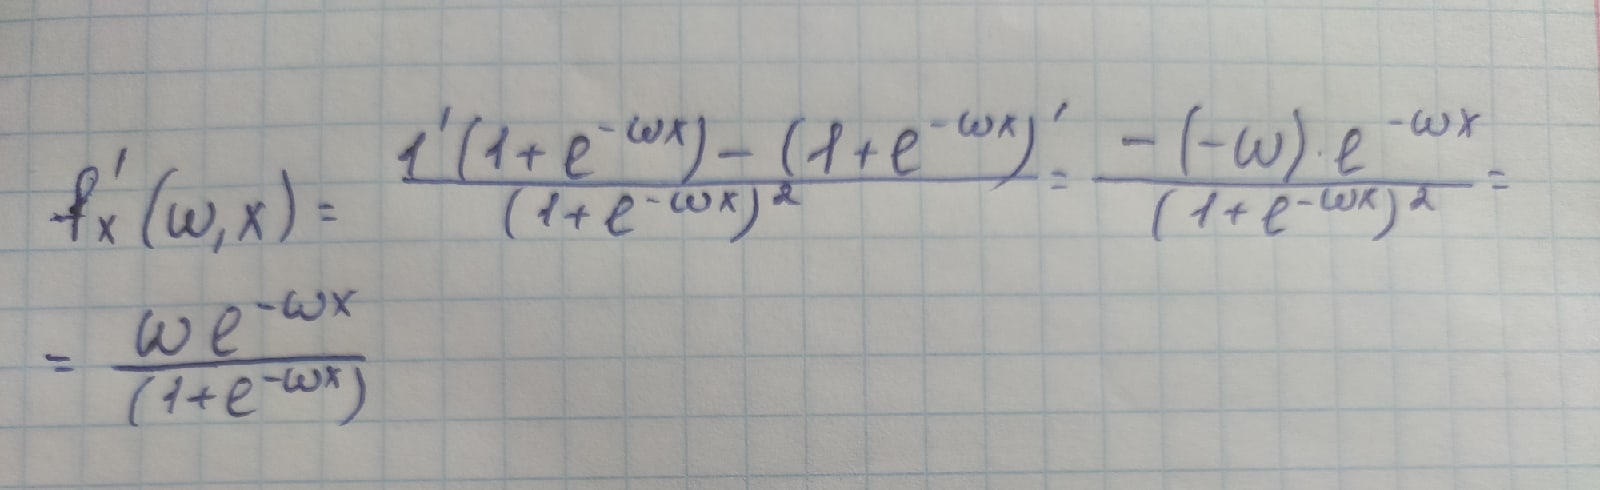 f'ₓ(ω,x) = \frac{1'(1+e^{-ωx}) - (1+e^{-ωx})'}{(1+e^{-ωx})^2} = \frac{-(-ω)·e^{-ωx}}{(1+e^{-ωx})^2} =
= \frac{ωe^{-ωx}}{(1+e^{-ωx})}